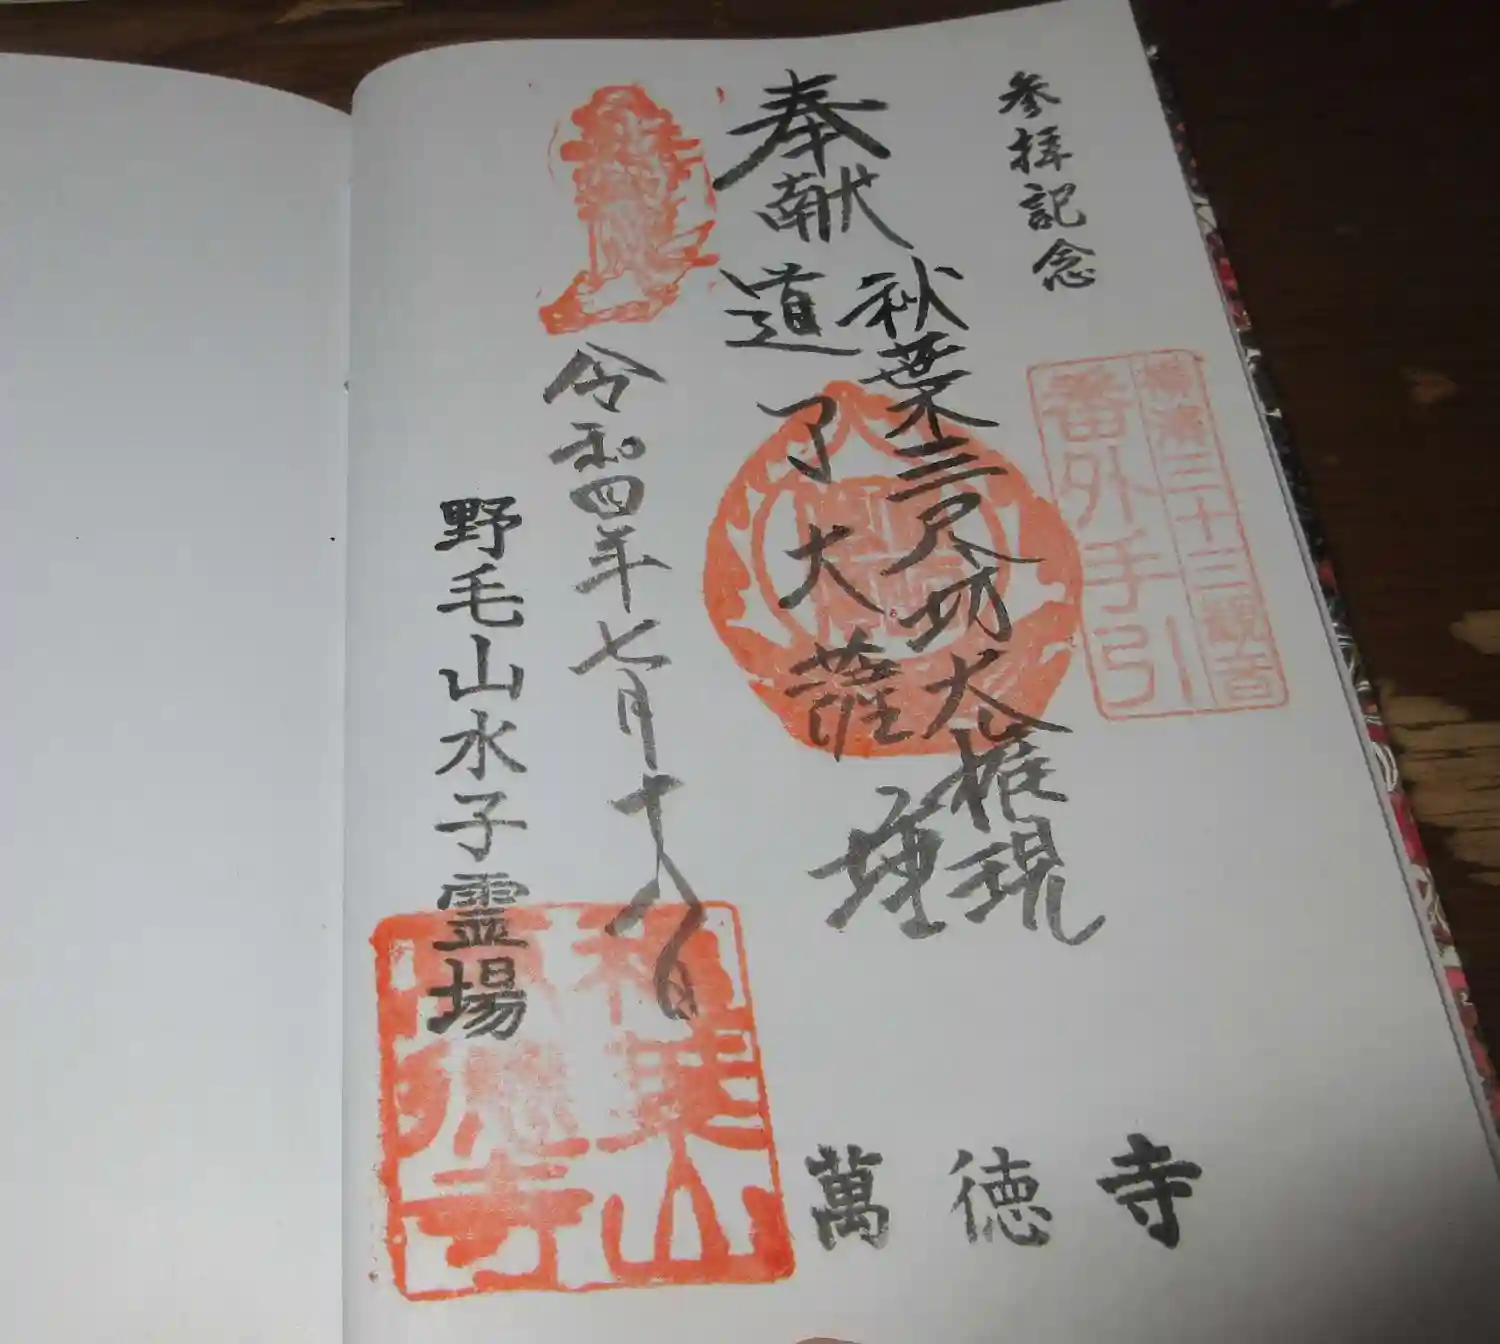 参拝記念
横濱三十三観音
番外手引
奉献
秋葉三尺坊大権現
道了大薩埵
令和四年七月十八日
野毛山水子霊場
萬徳寺